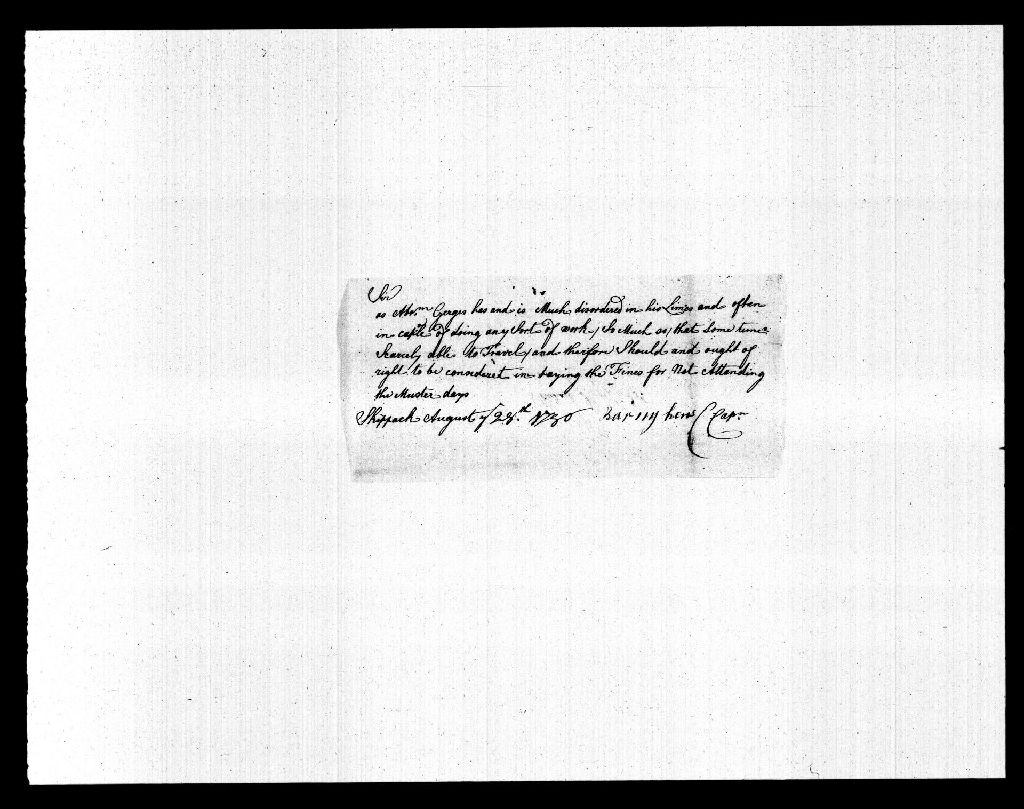 Sir
as Abrm Gerges has and is Much disordered in his Limbs and often
in caple of doing any Sort of work, So Much as that Some times
Scarcely able to Travel, and therfore Should and ought of
right to be consideret in paying the Fines for Not Attending
the Muster days
Skippack August ye 28th Capt